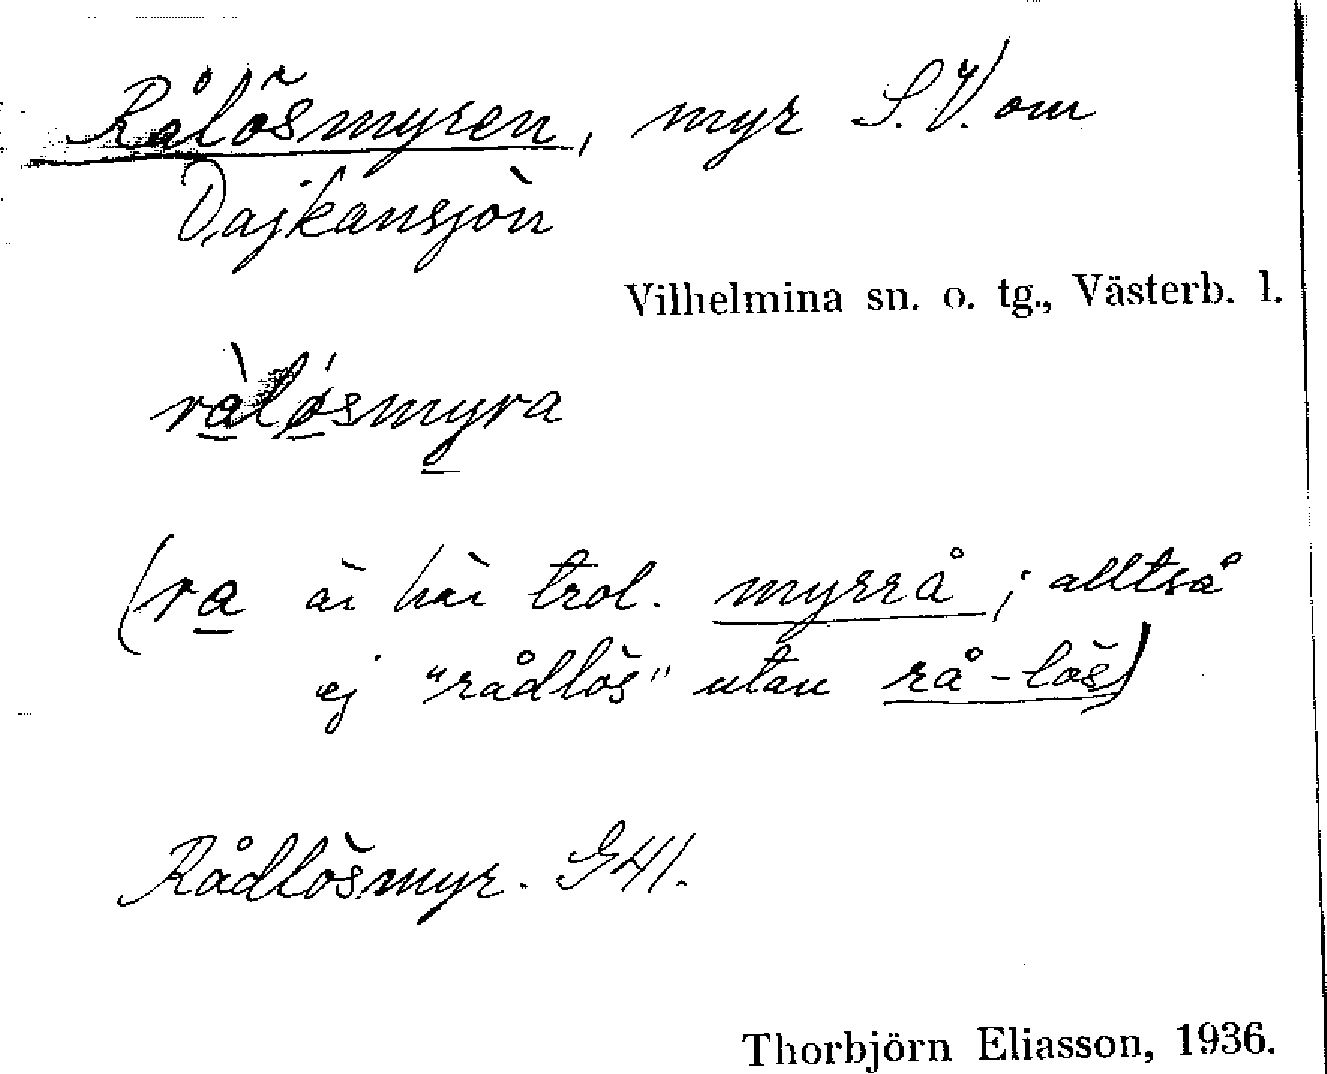 Rålösmyren, myr S.V. om
Dajkansjön
Vilhelmina sn. o. tg., Västerb. l.
ràlǿsmyra
(ra är här trol. myrrå; alltså
ej "rådlös" utan rå-lös)
Rådlösmyr. G41.
Thorbjörn Eliasson, 1936.